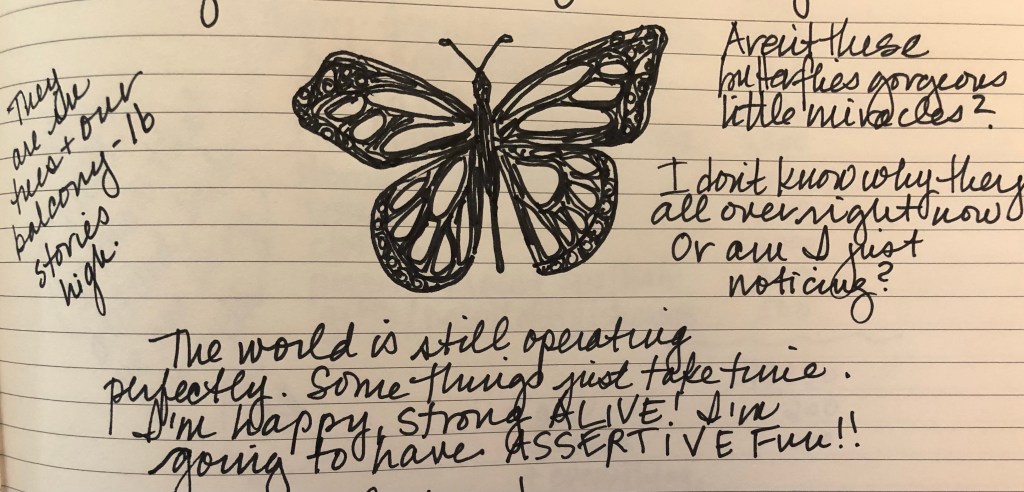 They
are the
trees + our
balcony - 16
stories
high.
Aren't these
butterflies gorgeous
little miracles?
I don't know why they
all over right now
Or am I just
noticing?
The world is still operating
perfectly. Some things just take time.
I'm happy, strong ALIVE! I'm
going to have ASSERTIVE Fun!!